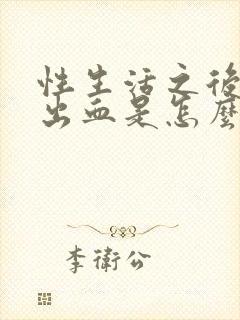 性生活之後
出血是怎麼
李衛公